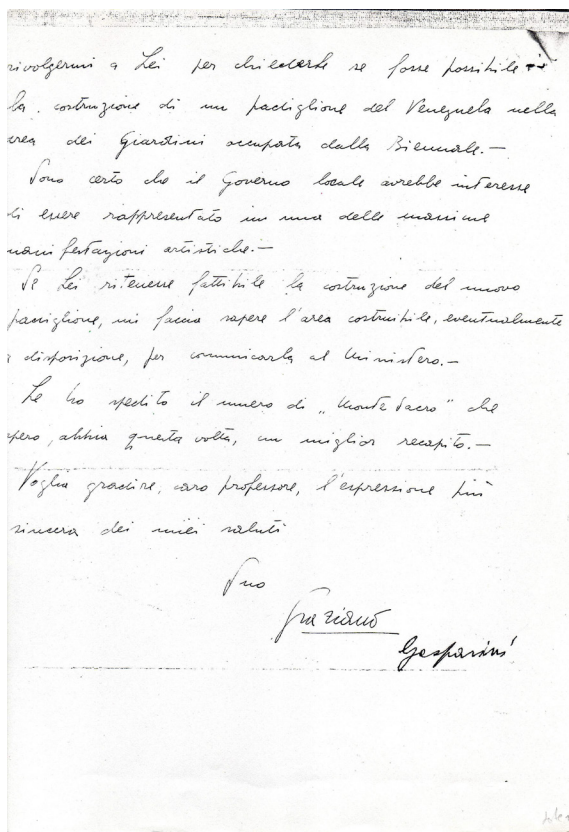 rivolgermi a Lei per chiederle se fosse possibile
la costruzione di un padiglione del Venezuela nella
area dei Giardini occupata dalla Biennale.—
Sono certo che il Governo locale avrebbe interesse
di essere rappresentato in una delle massime
manifestazioni artistiche.—
Se Lei ritenesse fattibile la costruzione del nuovo
padiglione, mi faccia sapere l'area costruibile, eventualmente
a disposizione, per comunicarla al Ministero.—
Le ho spedito il numero di „Monte Sacro" che
spero, abbia questa volta, un miglior recapito.—
Voglia gradire, caro professore, l'espressione più
sincera dei miei saluti
Suo
Graziano
Gasparini